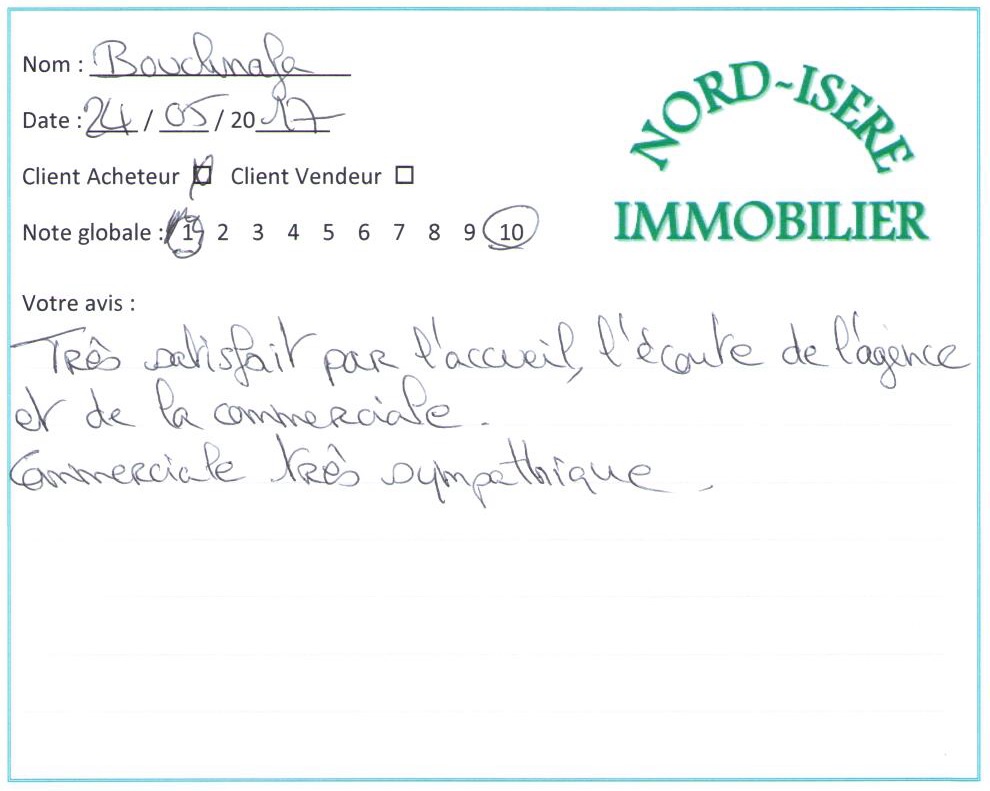 Nom : Bouchnafa
Date : 24 / 05 / 2017
Client Acheteur ☒ Client Vendeur ☐
Note globale : 1 2 3 4 5 6 7 8 9 10
NORD-ISERE
IMMOBILIER
Votre avis :
Très satisfait par l'accueil, l'écoute de l'agence
et de la commerciale.
Commerciale très sympathique.